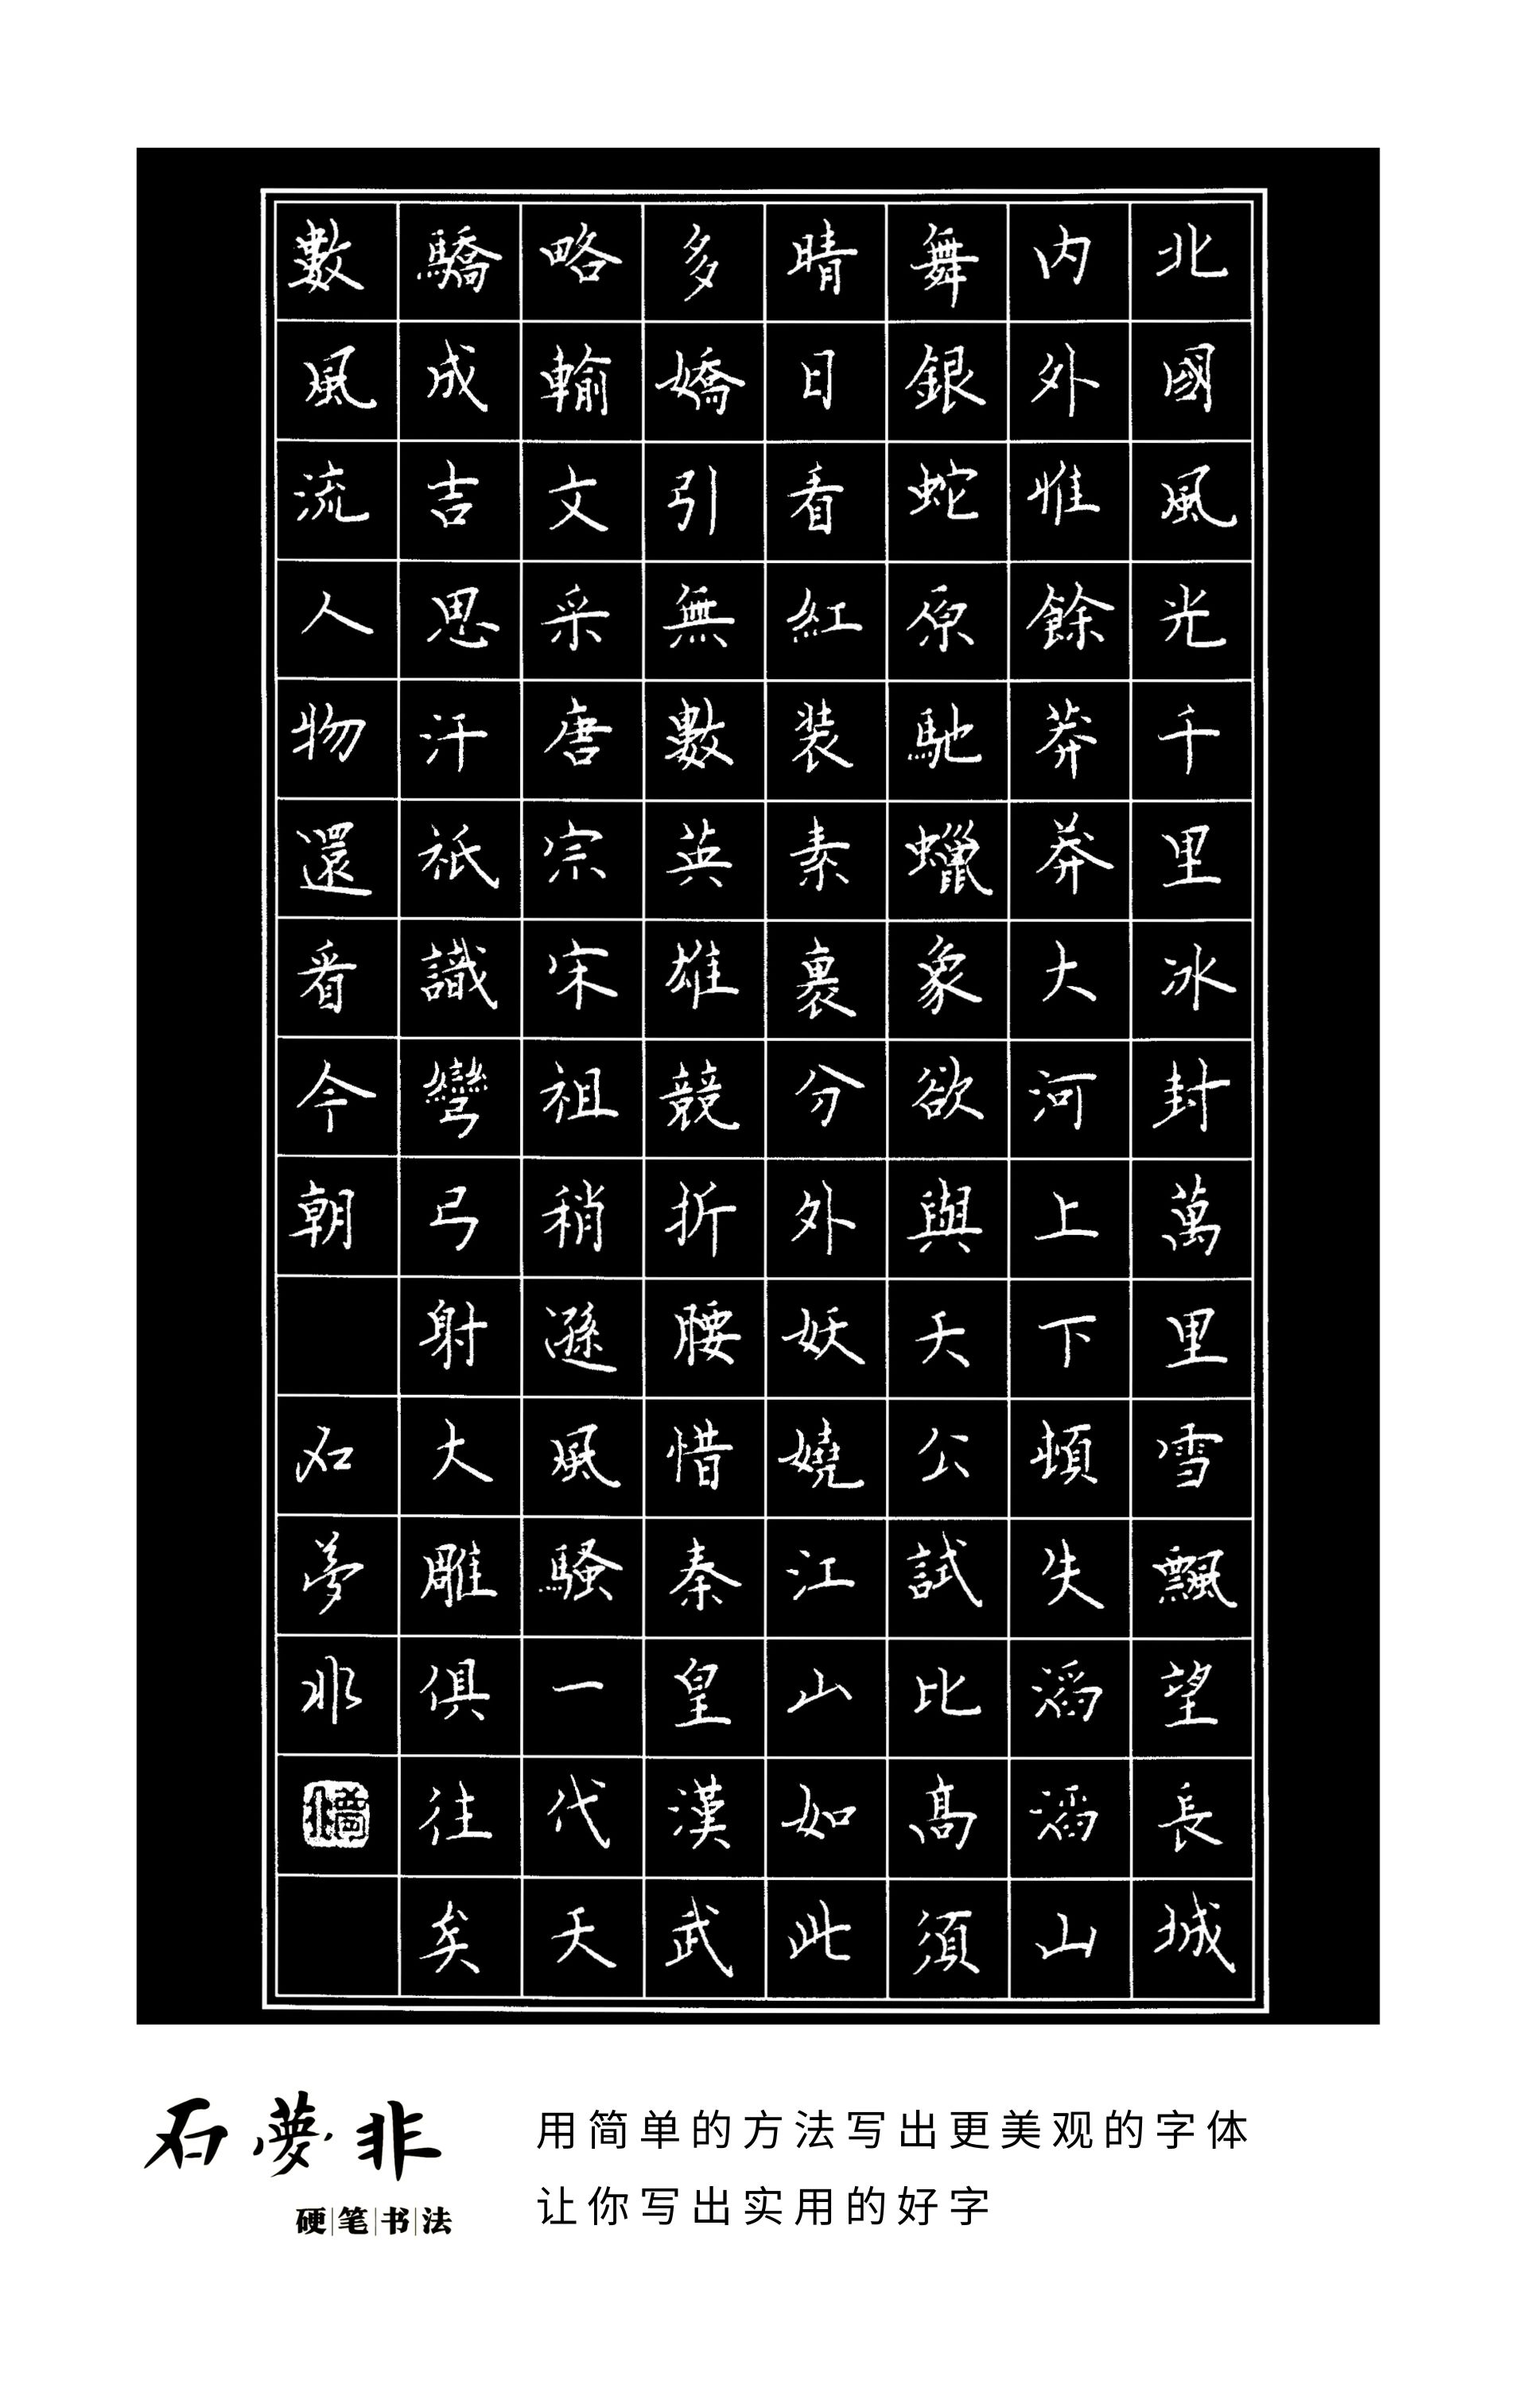 北國風光千里冰封萬里雪飄望長城
内外惟餘莽莽大河上下頓失滔滔山
舞銀蛇原馳蠟象欲與天公試比高須
晴日看紅装素裹分外妖嬈江山如此
多嬌引無數英雄競折腰惜秦皇漢武
略輸文采唐宗宋祖稍遜風騷一代天
驕成吉思汗祇識彎弓射大雕俱往矣
數風流人物還看今朝 石夢非
石夢非
硬笔书法
用简单的方法写出更美观的字体
让你写出实用的好字